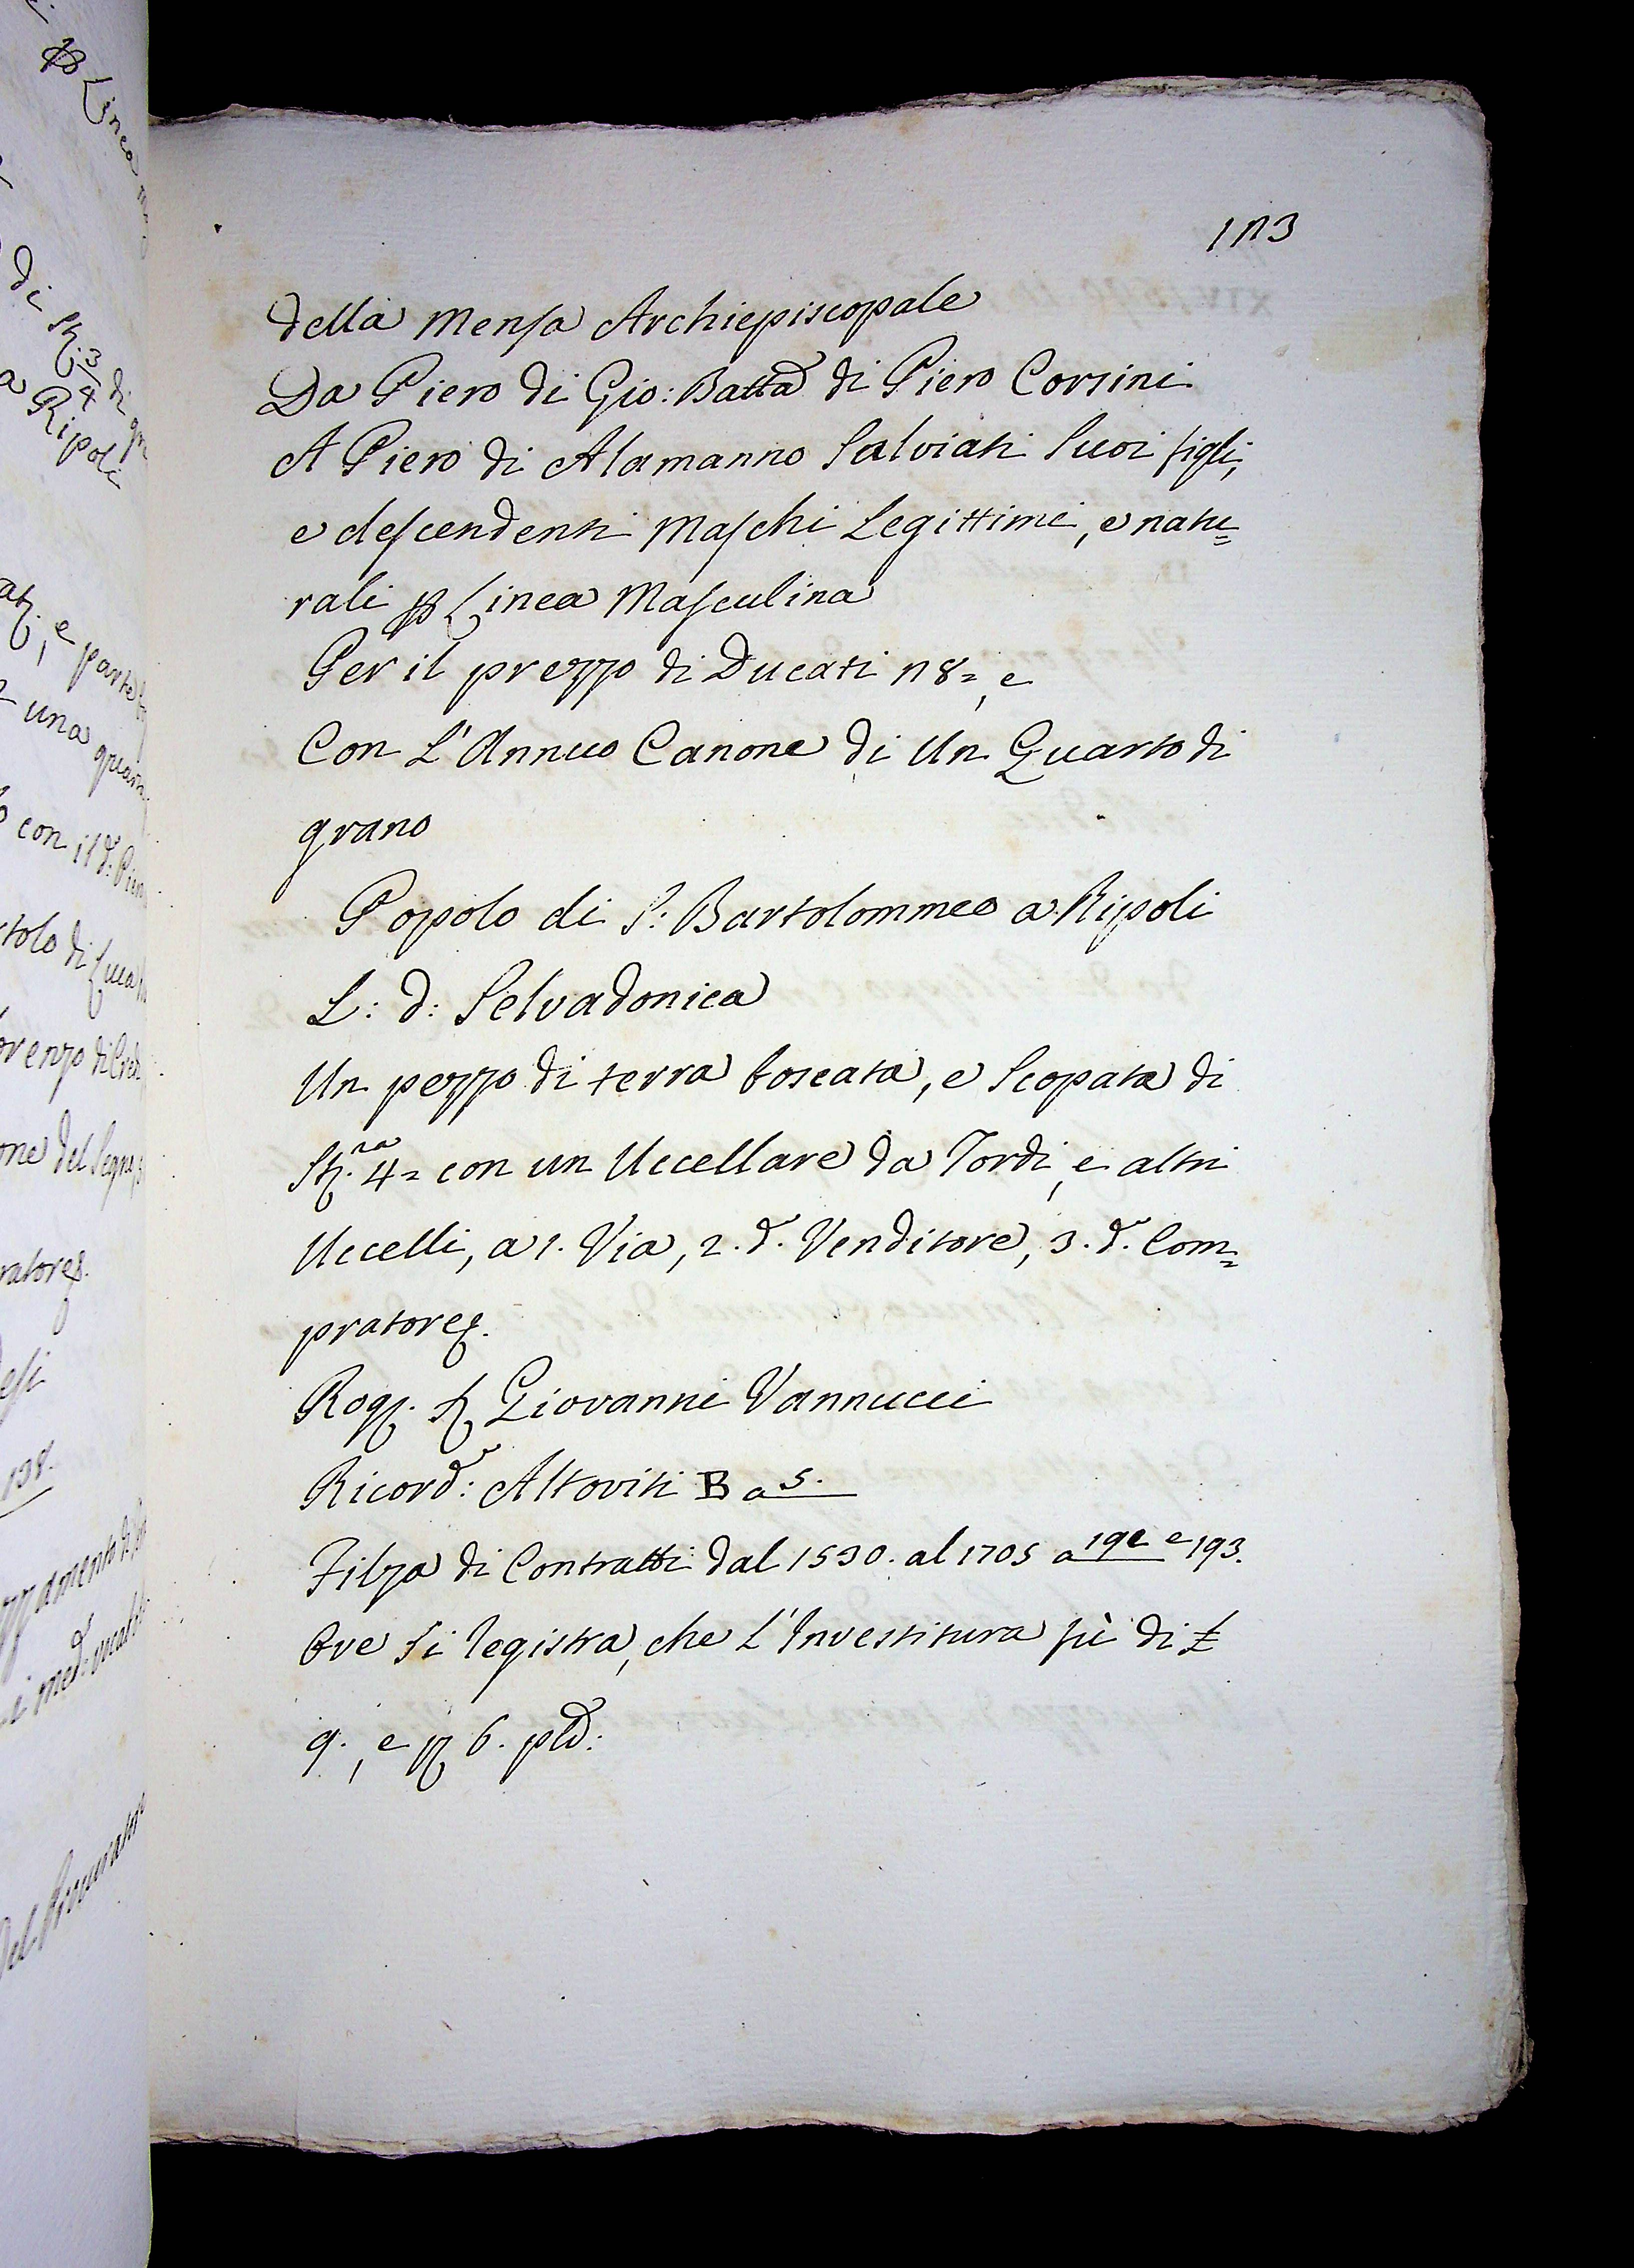 173
della Mensa Archiepiscopale
Da Piero di Gio: Batta di Piero Corsini
A Piero di Alamanno Salviati Suoi figli,
e descendenti Maschi Legittimi, e natu=
rali p Linea Masculina
Per il prezzo di Ducati 78=, e
Con L'Annuo Canone di Un Quarto di
grano
Popolo di S: Bartolommeo a Ripoli
L: d: Selvadonica
Un pezzo di terra boscata, e Scopata di
St. 4= con un Uccellare da Tordi, e altri
Uccelli, a 1. Via, 2. d. Venditore, 3. d. Com=
pratore.
Rog. S Giovanni Vannucci
Ricord: Altoviti B a 5.
Filza di Contratti dal 1530. al 1705 a 192 e 193.
Ove Si legistra, che L'Investitura fù di £
9., e 6. pld:
di St. 3/4 di
a Ripoli
e parte
una
con il d. Pier
138.